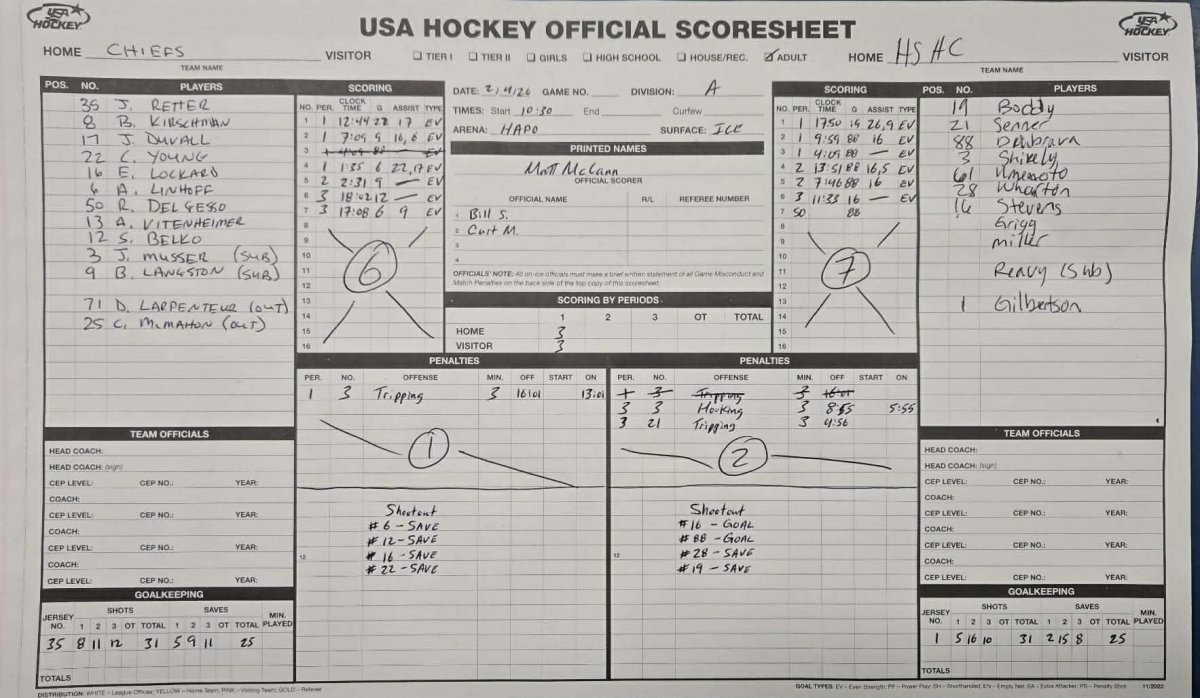 USA HOCKEY
USA HOCKEY OFFICIAL SCORESHEET
USA HOCKEY
HOME CHIEFS VISITOR
TEAM NAME
☐ TIER I ☐ TIER II ☐ GIRLS ☐ HIGH SCHOOL ☐ HOUSE/REC. ☑ ADULT
HOME HSHC VISITOR
TEAM NAME
POS. NO. PLAYERS
35 J. RETTER
8 B. KIRSCHMAN
17 J. DUVALL
22 C. YOUNG
16 E. LOCKARD
6 A. LINHOFF
50 R. DELGESSO
13 A. VITENHEIMER
12 S. BELKO
3 J. MUSSER (SUB)
9 B. LANGSTON (SUB)
71 D. LARPENTEUR (OUT)
25 C. McMAHON (OUT)
SCORING
NO. PER. CLOCK TIME G ASSIST TYPE
1 1 12:44 22 17 EV
2 1 7:09 9 16,6 EV
3 1 4:09 88 — EV
4 1 1:35 6 22,17 EV
5 2 2:31 9 — EV
6 3 18:02 12 — EV
7 3 17:08 6 9 EV
8
9
10
11
12
13
14
15
16
6
DATE: 2/4/26 GAME NO. DIVISION: A
TIMES: Start 10:30 End Curfew
ARENA: HAPO SURFACE: ICE
PRINTED NAMES
Matt McCann
OFFICIAL SCORER
OFFICIAL NAME R/L REFEREE NUMBER
1 Bill S.
2 Curt M.
3
4
OFFICIALS' NOTE: All on-ice officials must make a brief written statement of all Game Misconduct and
Match Penalties on the back side of the top copy of this scoresheet.
SCORING BY PERIODS
1 2 3 OT TOTAL
HOME 3
VISITOR 3
SCORING
NO. PER. CLOCK TIME G ASSIST TYPE
1 1 17:50 19 26,9 EV
2 1 9:59 88 16 EV
3 1 4:09 88 — EV
4 2 13:51 88 16,5 EV
5 2 7:46 88 16 EV
6 3 11:33 16 — EV
7 SO 88
8
9
10
11
12
13
14
15
16
7
POS. NO. PLAYERS
19 Boddy
21 Senner
88
3 Shikely
61 Umemoto
28 Wharton
16 Stevens
Grigg
Miller
Reavy (Sub)
1 Gilbertson
PENALTIES
PER. NO. OFFENSE MIN. OFF START ON
1 3 Tripping 3 16:01 13:01
1
PENALTIES
PER. NO. OFFENSE MIN. OFF START ON
1 3 Tripping 3 16:01
3 3 Hooking 3 8:55 5:55
3 21 Tripping 3 4:56
2
Shootout
#6 - SAVE
#12 - SAVE
#16 - SAVE
#22 - SAVE
12
Shootout
#16 - GOAL
#88 - GOAL
#28 - SAVE
#19 - SAVE
12
TEAM OFFICIALS
HEAD COACH:
HEAD COACH: (sign)
CEP LEVEL: CEP NO.: YEAR:
COACH:
CEP LEVEL: CEP NO.: YEAR:
COACH:
CEP LEVEL: CEP NO.: YEAR:
COACH:
CEP LEVEL: CEP NO.: YEAR:
GOALKEEPING
JERSEY NO. SHOTS 1 2 3 OT TOTAL SAVES 1 2 3 OT TOTAL MIN. PLAYED
35 8 11 12 31 5 9 11 25
TOTALS
TEAM OFFICIALS
HEAD COACH:
HEAD COACH: (sign)
CEP LEVEL: CEP NO.: YEAR:
COACH:
CEP LEVEL: CEP NO.: YEAR:
COACH:
CEP LEVEL: CEP NO.: YEAR:
COACH:
CEP LEVEL: CEP NO.: YEAR:
GOALKEEPING
JERSEY NO. SHOTS 1 2 3 OT TOTAL SAVES 1 2 3 OT TOTAL MIN. PLAYED
1 5 16 10 31 2 15 8 25
TOTALS
DISTRIBUTION: WHITE – League Offices; YELLOW – Home Team; PINK – Visiting Team; GOLD – Referee
GOAL TYPES: EV – Even Strength; PP – Power Play; SH – Shorthanded; EN – Empty Net; EA – Extra Attacker; PS – Penalty Shot 11/2022